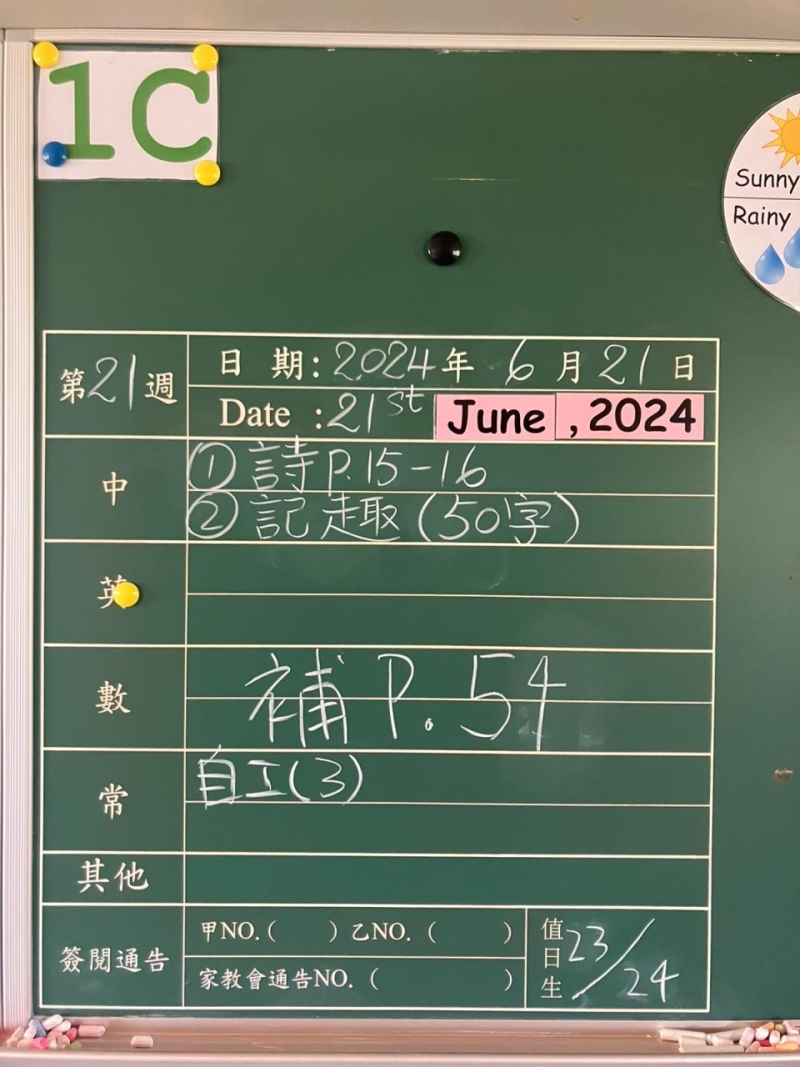 1C
Sunny
Rainy
第21週
日 期: 2024年 6月21日
Date : 21st June , 2024
中
① 詩P.15-16
② 記趣(50字)
英
數
補 P.54
常
自工(3)
其他
簽閱通告
甲NO.( ) 乙NO. ( )
家教會通告NO. ( )
值日生
23/24